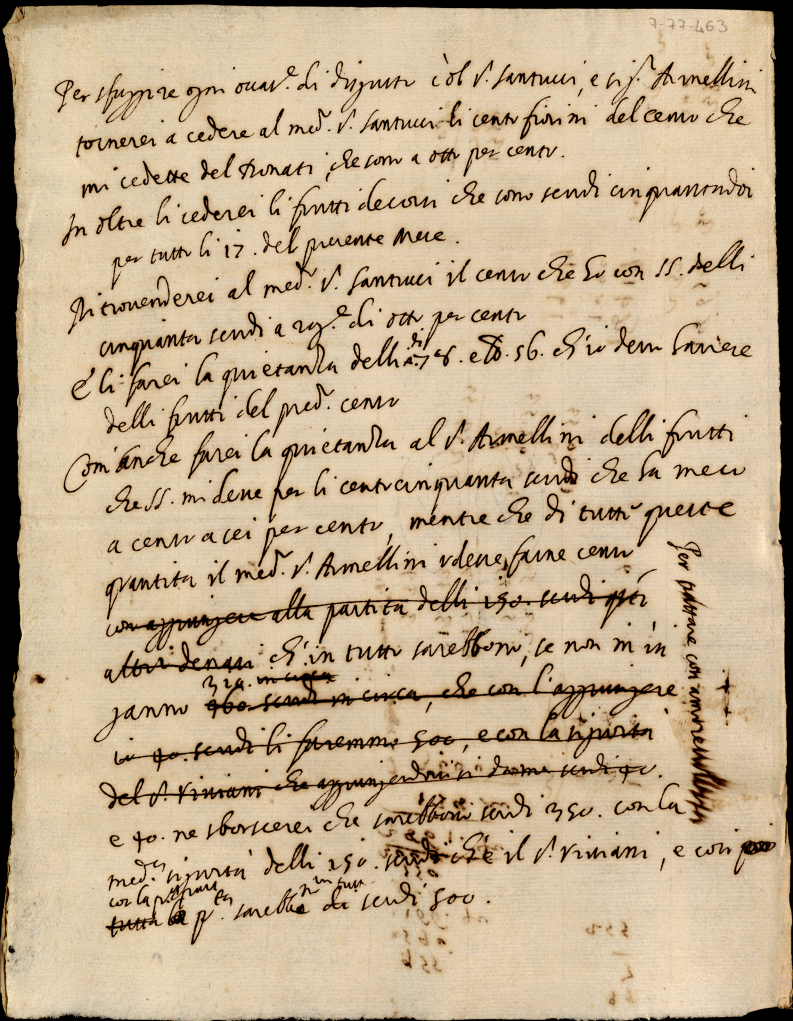 7-77-463
Per sfuggire ogni occas.e di disgusti col S. Santucci, e sig.r Armellini
tornerei a cedere al med.o S. Santucci li cento fiorini del censo che
mi cedette del Donati, che sono a otto per cento.
In oltre li cederei li frutti decorsi che sono scudi cinquantadoi
per tutto li 17. del presente Mese.
Ritrovenderei al med.o S. Santucci il censo che ho con SS. delli
cinquanta scudi a rag.e di otto per cento
E li farei la quietanza delli 56. ch'io devo havere
delli frutti del pred.o censo
Com'anche farei la quietanza al S. Armellini delli frutti
che SS. mi deve per li centocinquanta scudi che ha meco
a censo a sei per cento, mentre che di tutte queste
quantità il med.o S. Armellini deve farne censo
con aggiungere alla partita delli 150. scudi
altri denari ch'in tutto sarebbono, se non m'in
ganno 360 scudi in circa, che con l'aggiungere
320. in circa
40. scudi li faremmo 500, e con la sigurtà
del S. Viviani che aggiungendovi scudi 40.
e 40. ne sborserei che sarebbono scudi 350. con la
med.a sigurtà delli 150. scudi ch'è il S. Viviani, e così
con la
tutta la p.ta sarebbe di scudi 500.
Per trattare con